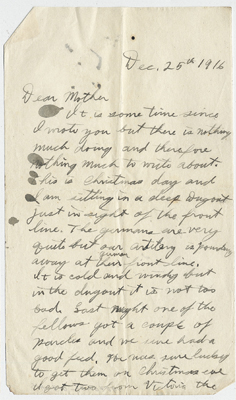 Dec. 25th 1916
Dear Mother
It is some time since
I wrote you but there is nothing
much doing and therefore
nothing much to write about.
This is Christmas day and
I am sitting in a deep dugout
just in sight of the front
line. The germans are very
quite but our artilery is pounding
away at their german front line.
It is cold and windy but
in the dugout it is not too
bad. Last night one of the
fellows got a couple of
parcles and we sure had a
good feed. We were sure lucky
to get them on Christmas eve
I got two from Victoria the